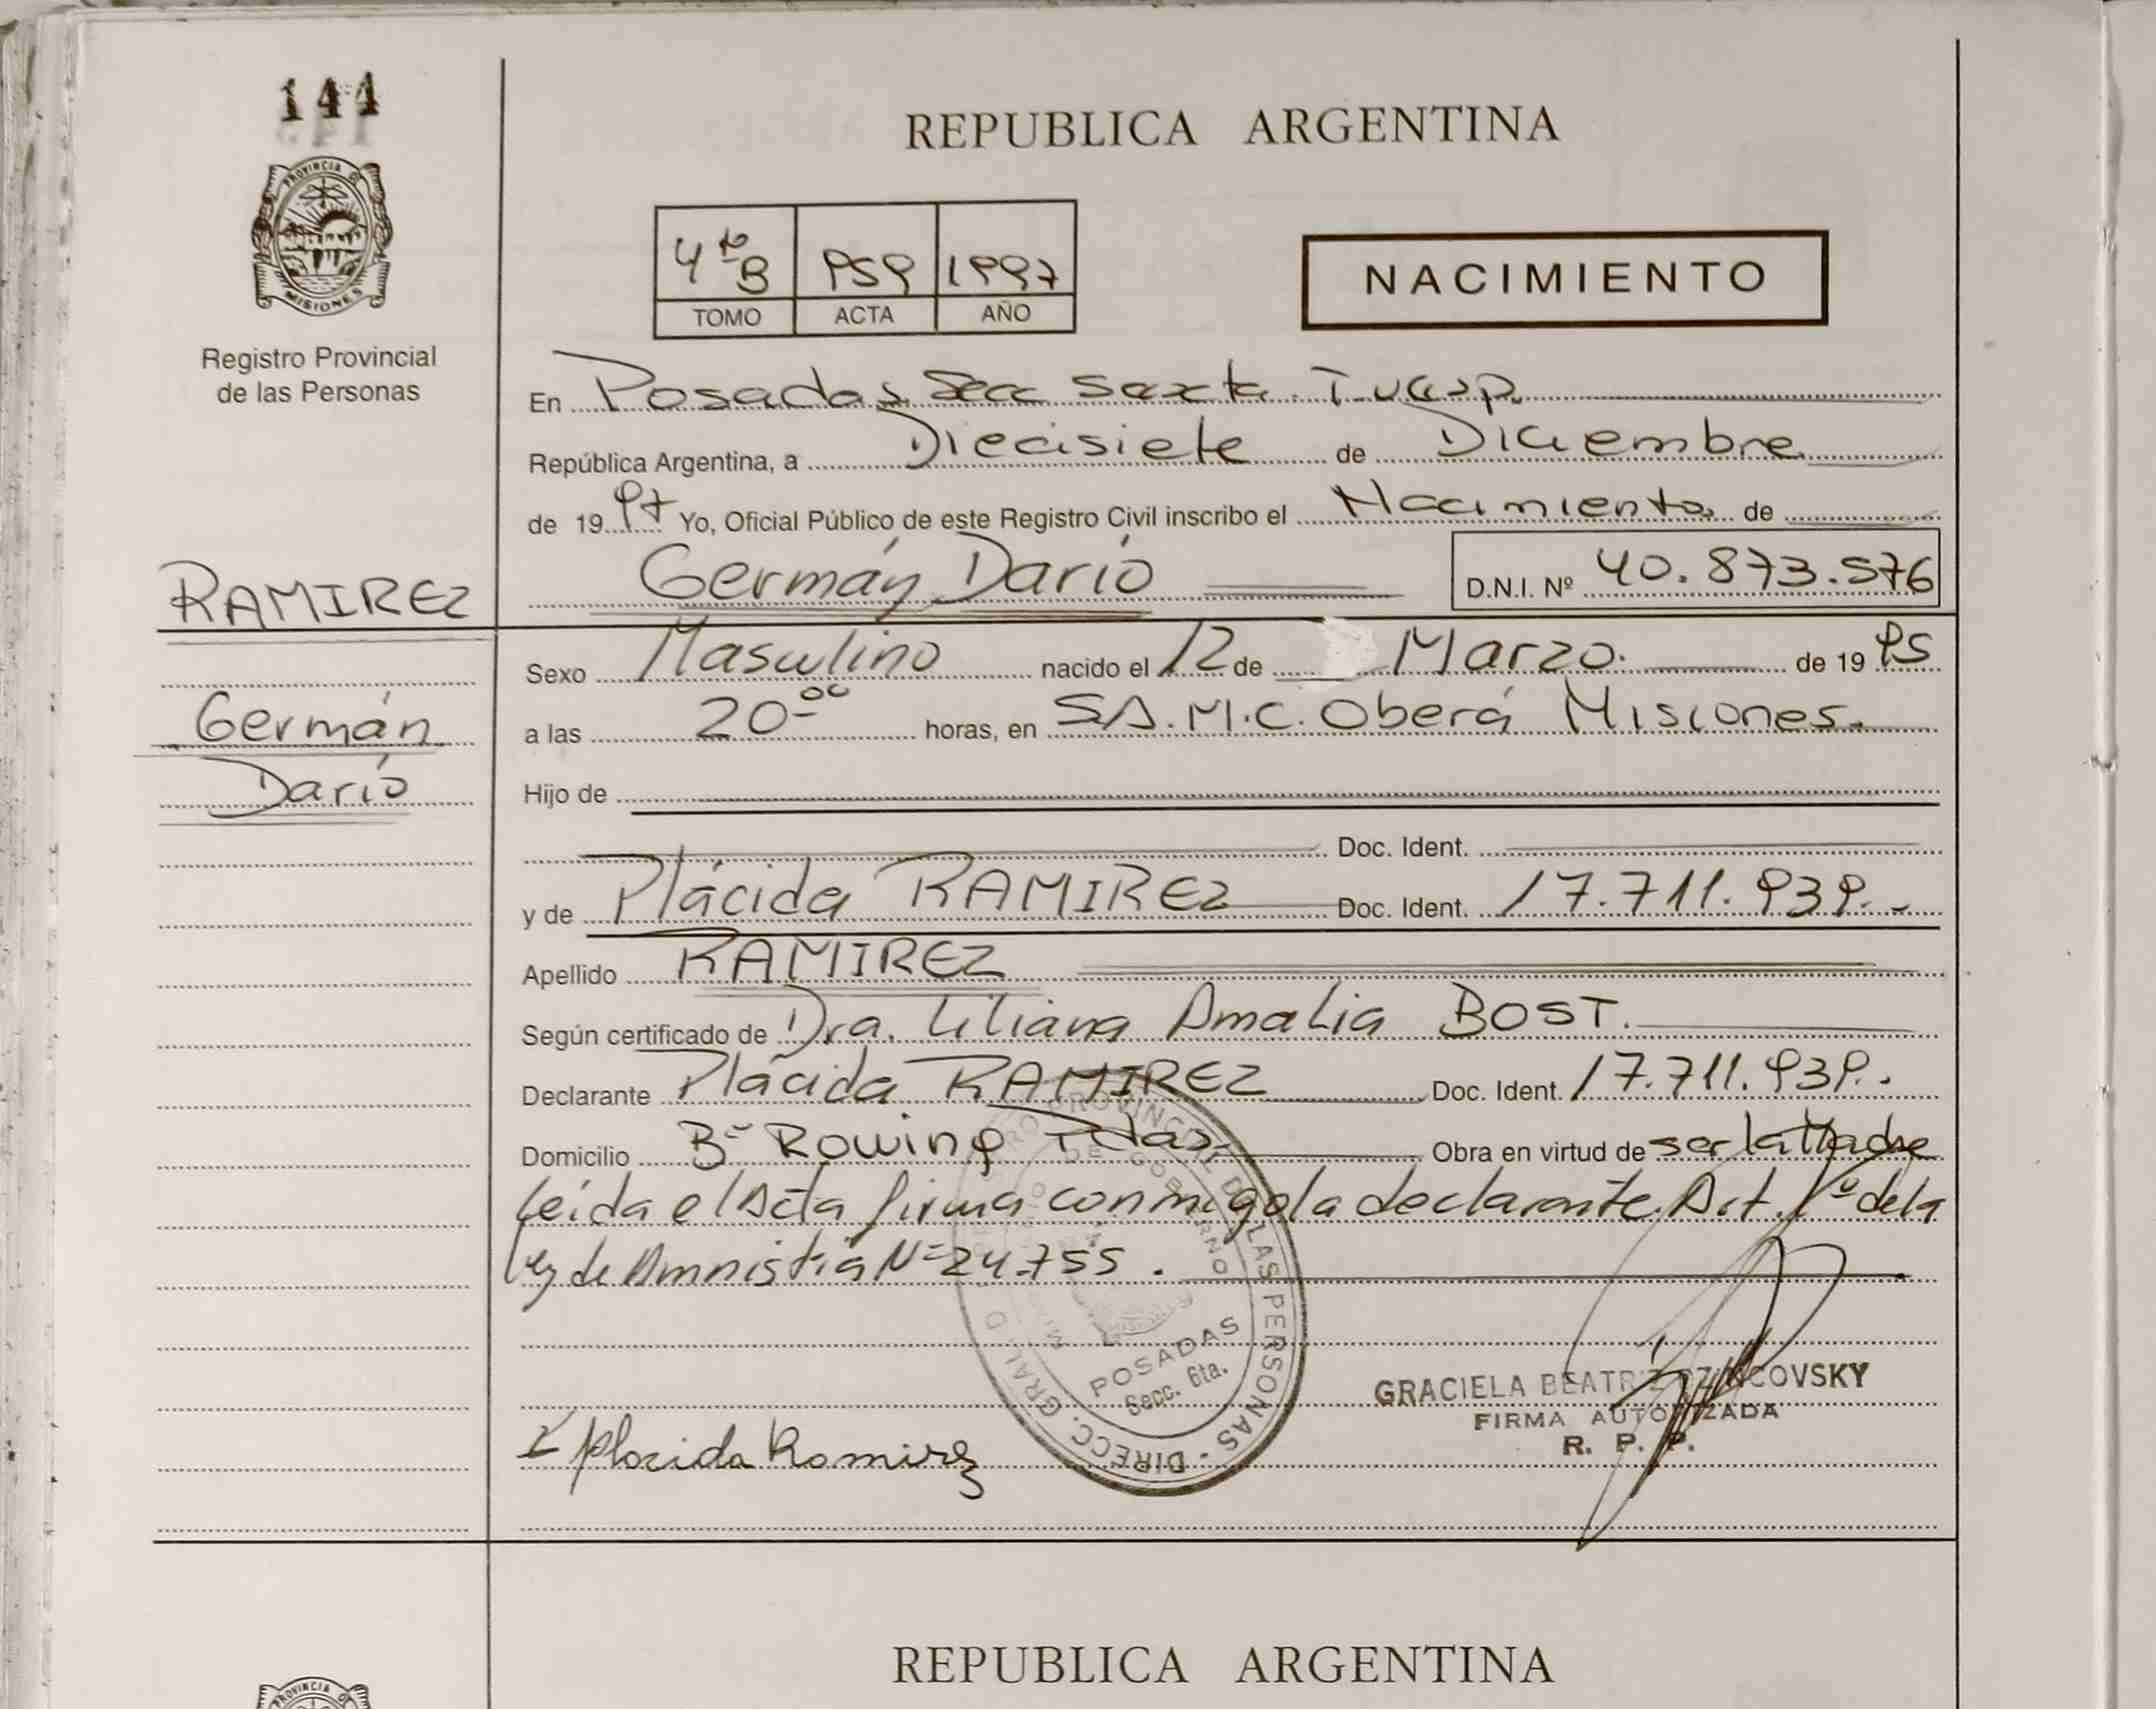 144
REPUBLICA ARGENTINA
PROVINCIA DE
MISIONES
Registro Provincial
de las Personas
4to B 959 1997
TOMO ACTA AÑO
NACIMIENTO
En Posadas Secc Sexta
República Argentina, a Diecisiete de Diciembre
de 1997 Yo, Oficial Público de este Registro Civil inscribo el Nacimiento de
RAMIREZ
Germán Darío D.N.I. Nº 40.873.576
Sexo Masculino nacido el 12 de Marzo. de 1995
Germán
a las 20 00 horas, en S.A.M.C. Oberá Misiones.
Darío
Hijo de
Doc. Ident.
y de Plácida RAMIREZ Doc. Ident. 17.711.939.
Apellido RAMIREZ
Según certificado de Dra. Liliana Amalia BOST.
Declarante Plácida RAMIREZ Doc. Ident. 17.711.939.
Domicilio Bº Rowing Pdas. Obra en virtud de ser la Madre
Leída el Acta firma conmigo la declarante. Art. 1º de la
Ley de Amnistía Nº 24.755.
DIRECC. GRAL. PROVINCIAL DE LAS PERSONAS
POSADAS
Secc. 6ta.
GRACIELA BEATRIZ
FIRMA AUTORIZADA
R. P. P.
Placida Ramirez
REPUBLICA ARGENTINA
PROVINCIA DE